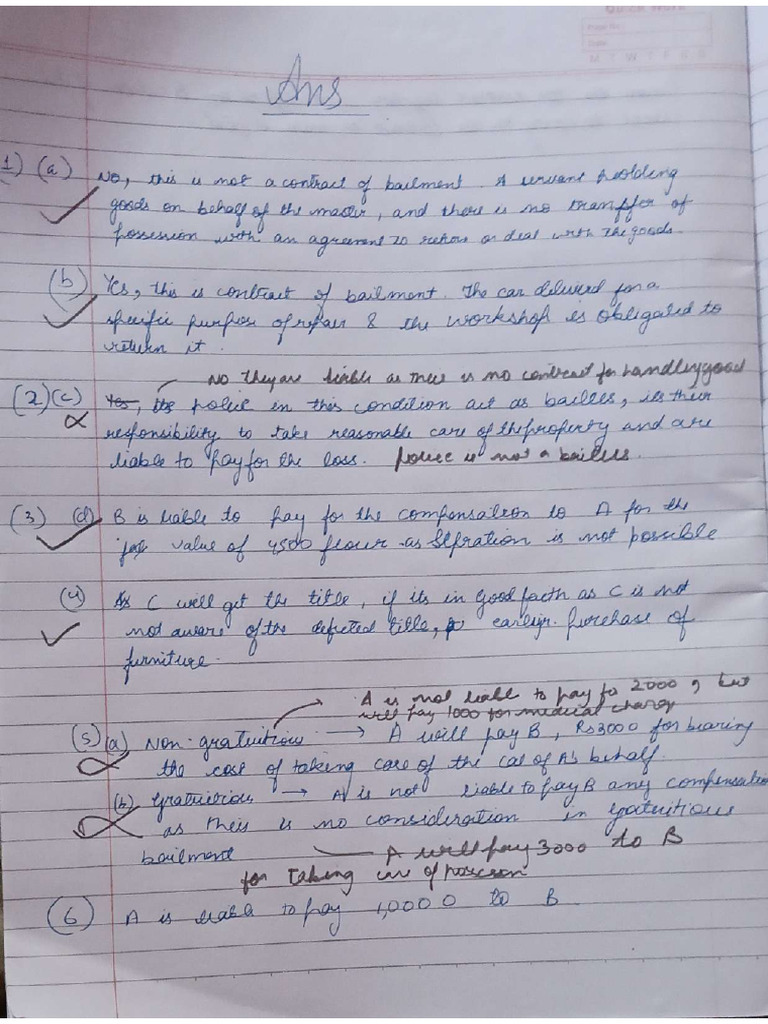 Quick Work
Page No.
Date
M T W T F S S
Ans
1) (a) No, this is not a contract of bailment. A servant holding
goods on behalf of the master, and there is no transfer of
possession with an agreement to return or deal with the goods.
(b) Yes, this is contract of bailment. The car delivered for a
specific purpose of repair & the workshop is obligated to
return it.
No they are liable as there is no contract for handling good
(2) (c) Yes, the police in this condition act as bailees, its their
responsibility to take reasonable care of the property and are
liable to pay for the loss. police is not a bailus.
(3) (d) B is liable to pay for the compensation to A for the
value of 4500 flour as Sepration is not possible
(4) C will get the title, if its in good faeth as C is not
not aware of the defected title, earlier purchase of
furniture.
A is not liable to pay fo 2000, but
will pay 1000 for medical charge
(5) (a) Non-gratuitious → A will pay B, Rs3000 for bearing
the cost of taking care of the cal of A's behalf.
(b) Gratuitious → A is not liable to pay B any compensatio
as their is no consideration in gatuitious
bailment A will pay 3000 to B
for Taking care of
(6) A is liable to pay 1,0000 to B